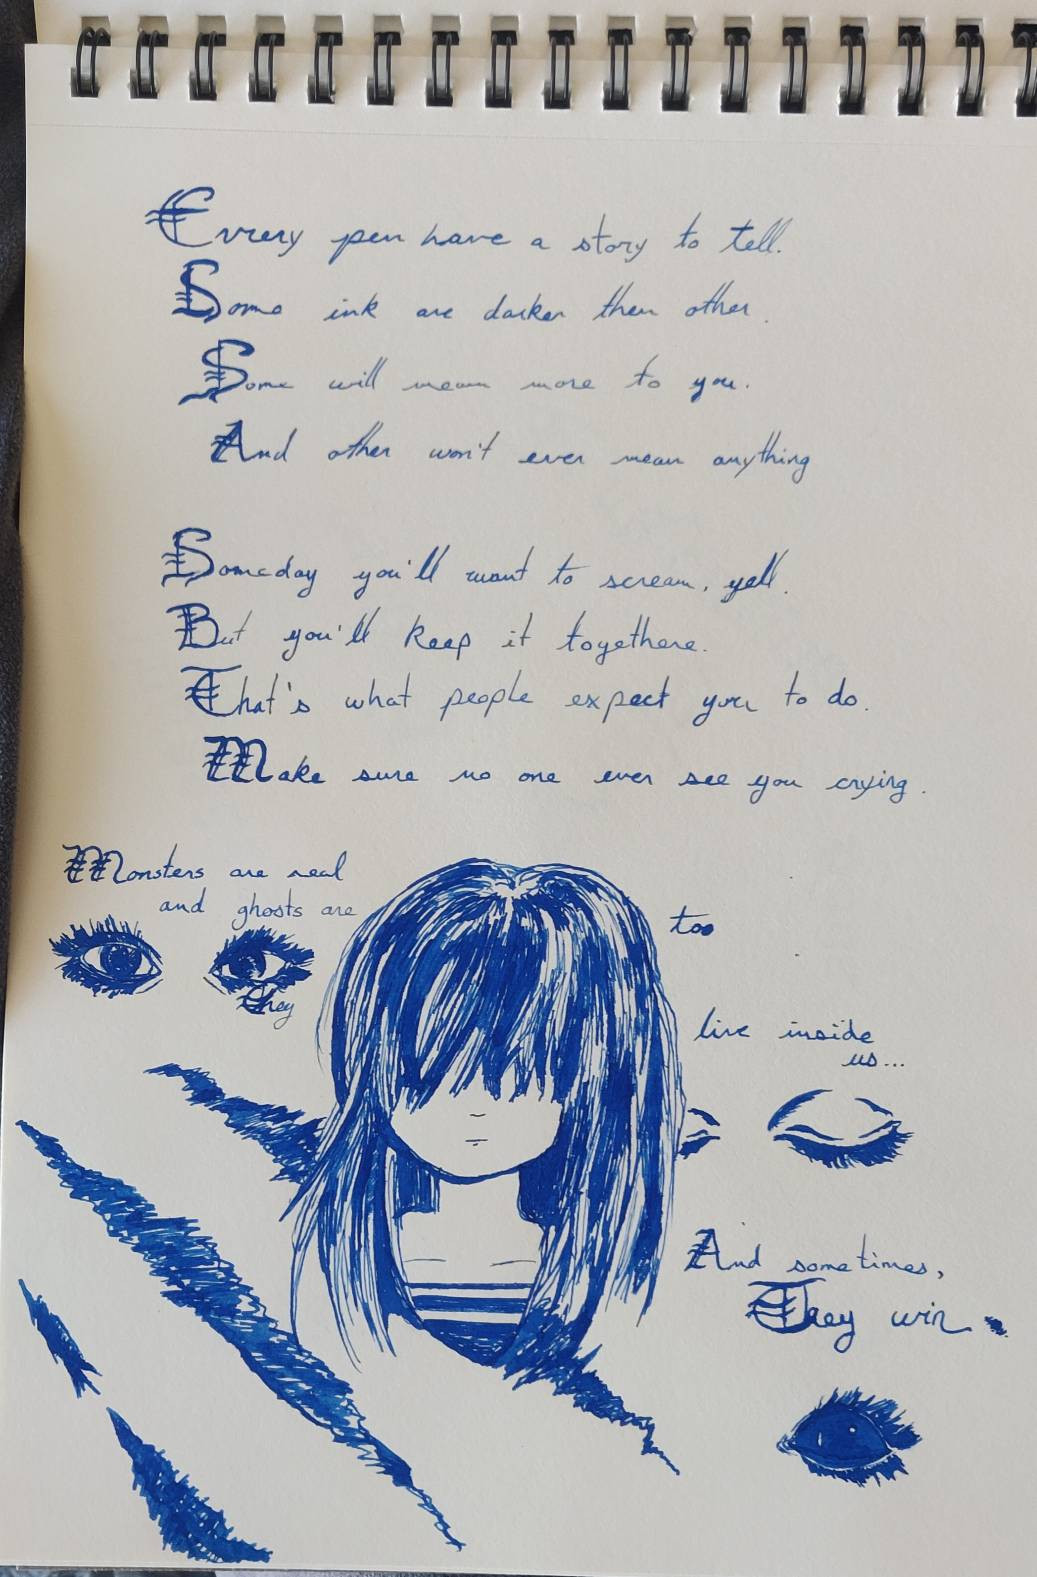 Every pen have a story to tell.
Some ink are darker then other.
Some will mean more to you.
And other won't ever mean anything
Someday you'll want to scream, yell.
But you'll keep it togethere.
That's what people expect you to do.
Make sure no one ever see you crying.
Monsters are real
and ghosts are
too
They
live inside
us...
And sometimes,
They win.